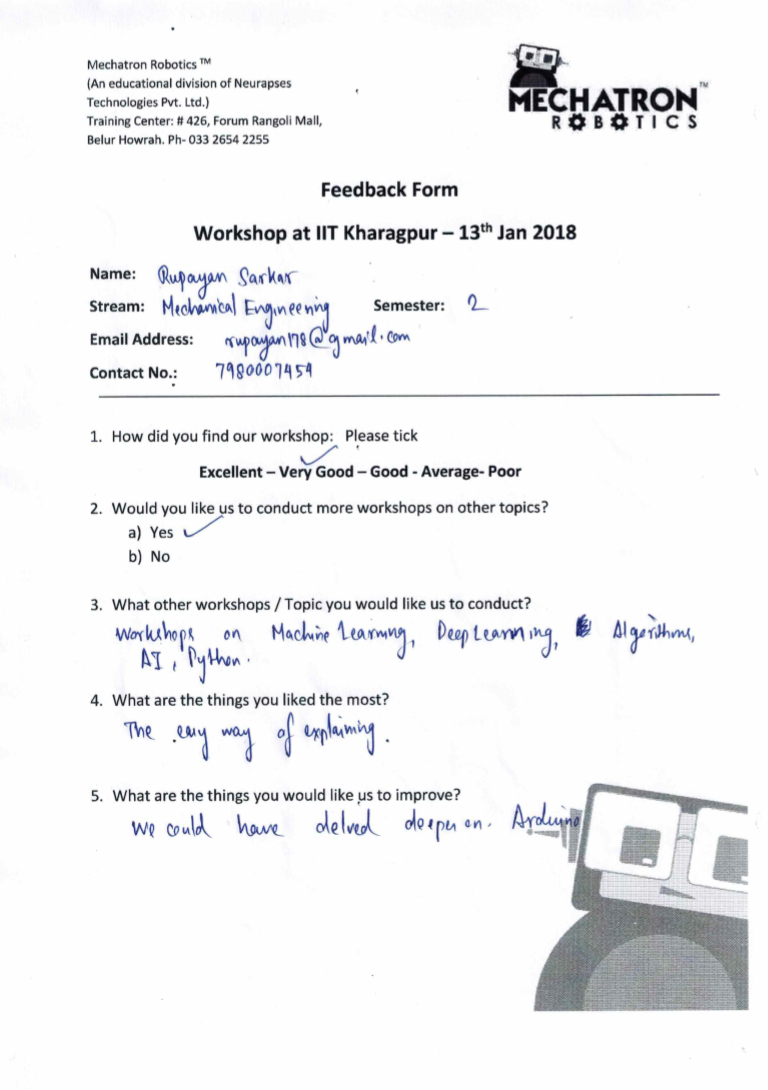 Mechatron Robotics ™
(An educational division of Neurapses
Technologies Pvt. Ltd.)
Training Center: # 426, Forum Rangoli Mall,
Belur Howrah. Ph- 033 2654 2255
MECHATRON™
ROBOTICS
Feedback Form
Workshop at IIT Kharagpur – 13th Jan 2018
Name: Rupayan Sarkar
Stream: Mechanical Engineering Semester: 2
Email Address: rupayan178@gmail.com
Contact No.: 7980007454
1. How did you find our workshop: Please tick
Excellent – Very Good – Good - Average- Poor
2. Would you like us to conduct more workshops on other topics?
a) Yes
b) No
3. What other workshops / Topic you would like us to conduct?
Workshops on Machine Learning, Deep Learning, Algorithms,
AI, Python.
4. What are the things you liked the most?
The easy way of explaining.
5. What are the things you would like us to improve?
We could have delved deeper on. Arduino